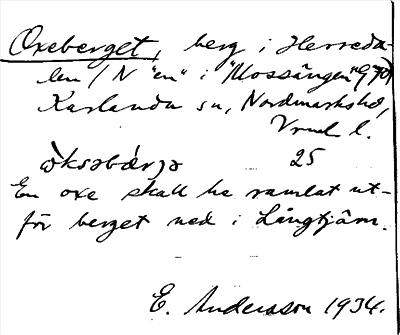 Oxeberget, berg i Herreda-
len / N "en" i "Mossängen" 970)
Karlanda sn, Nordmarks hd,
Vrml l.
25
En oxe skall ha ramlat ut-
för berget ned i Långtjärn.
E. Andersson 1934.